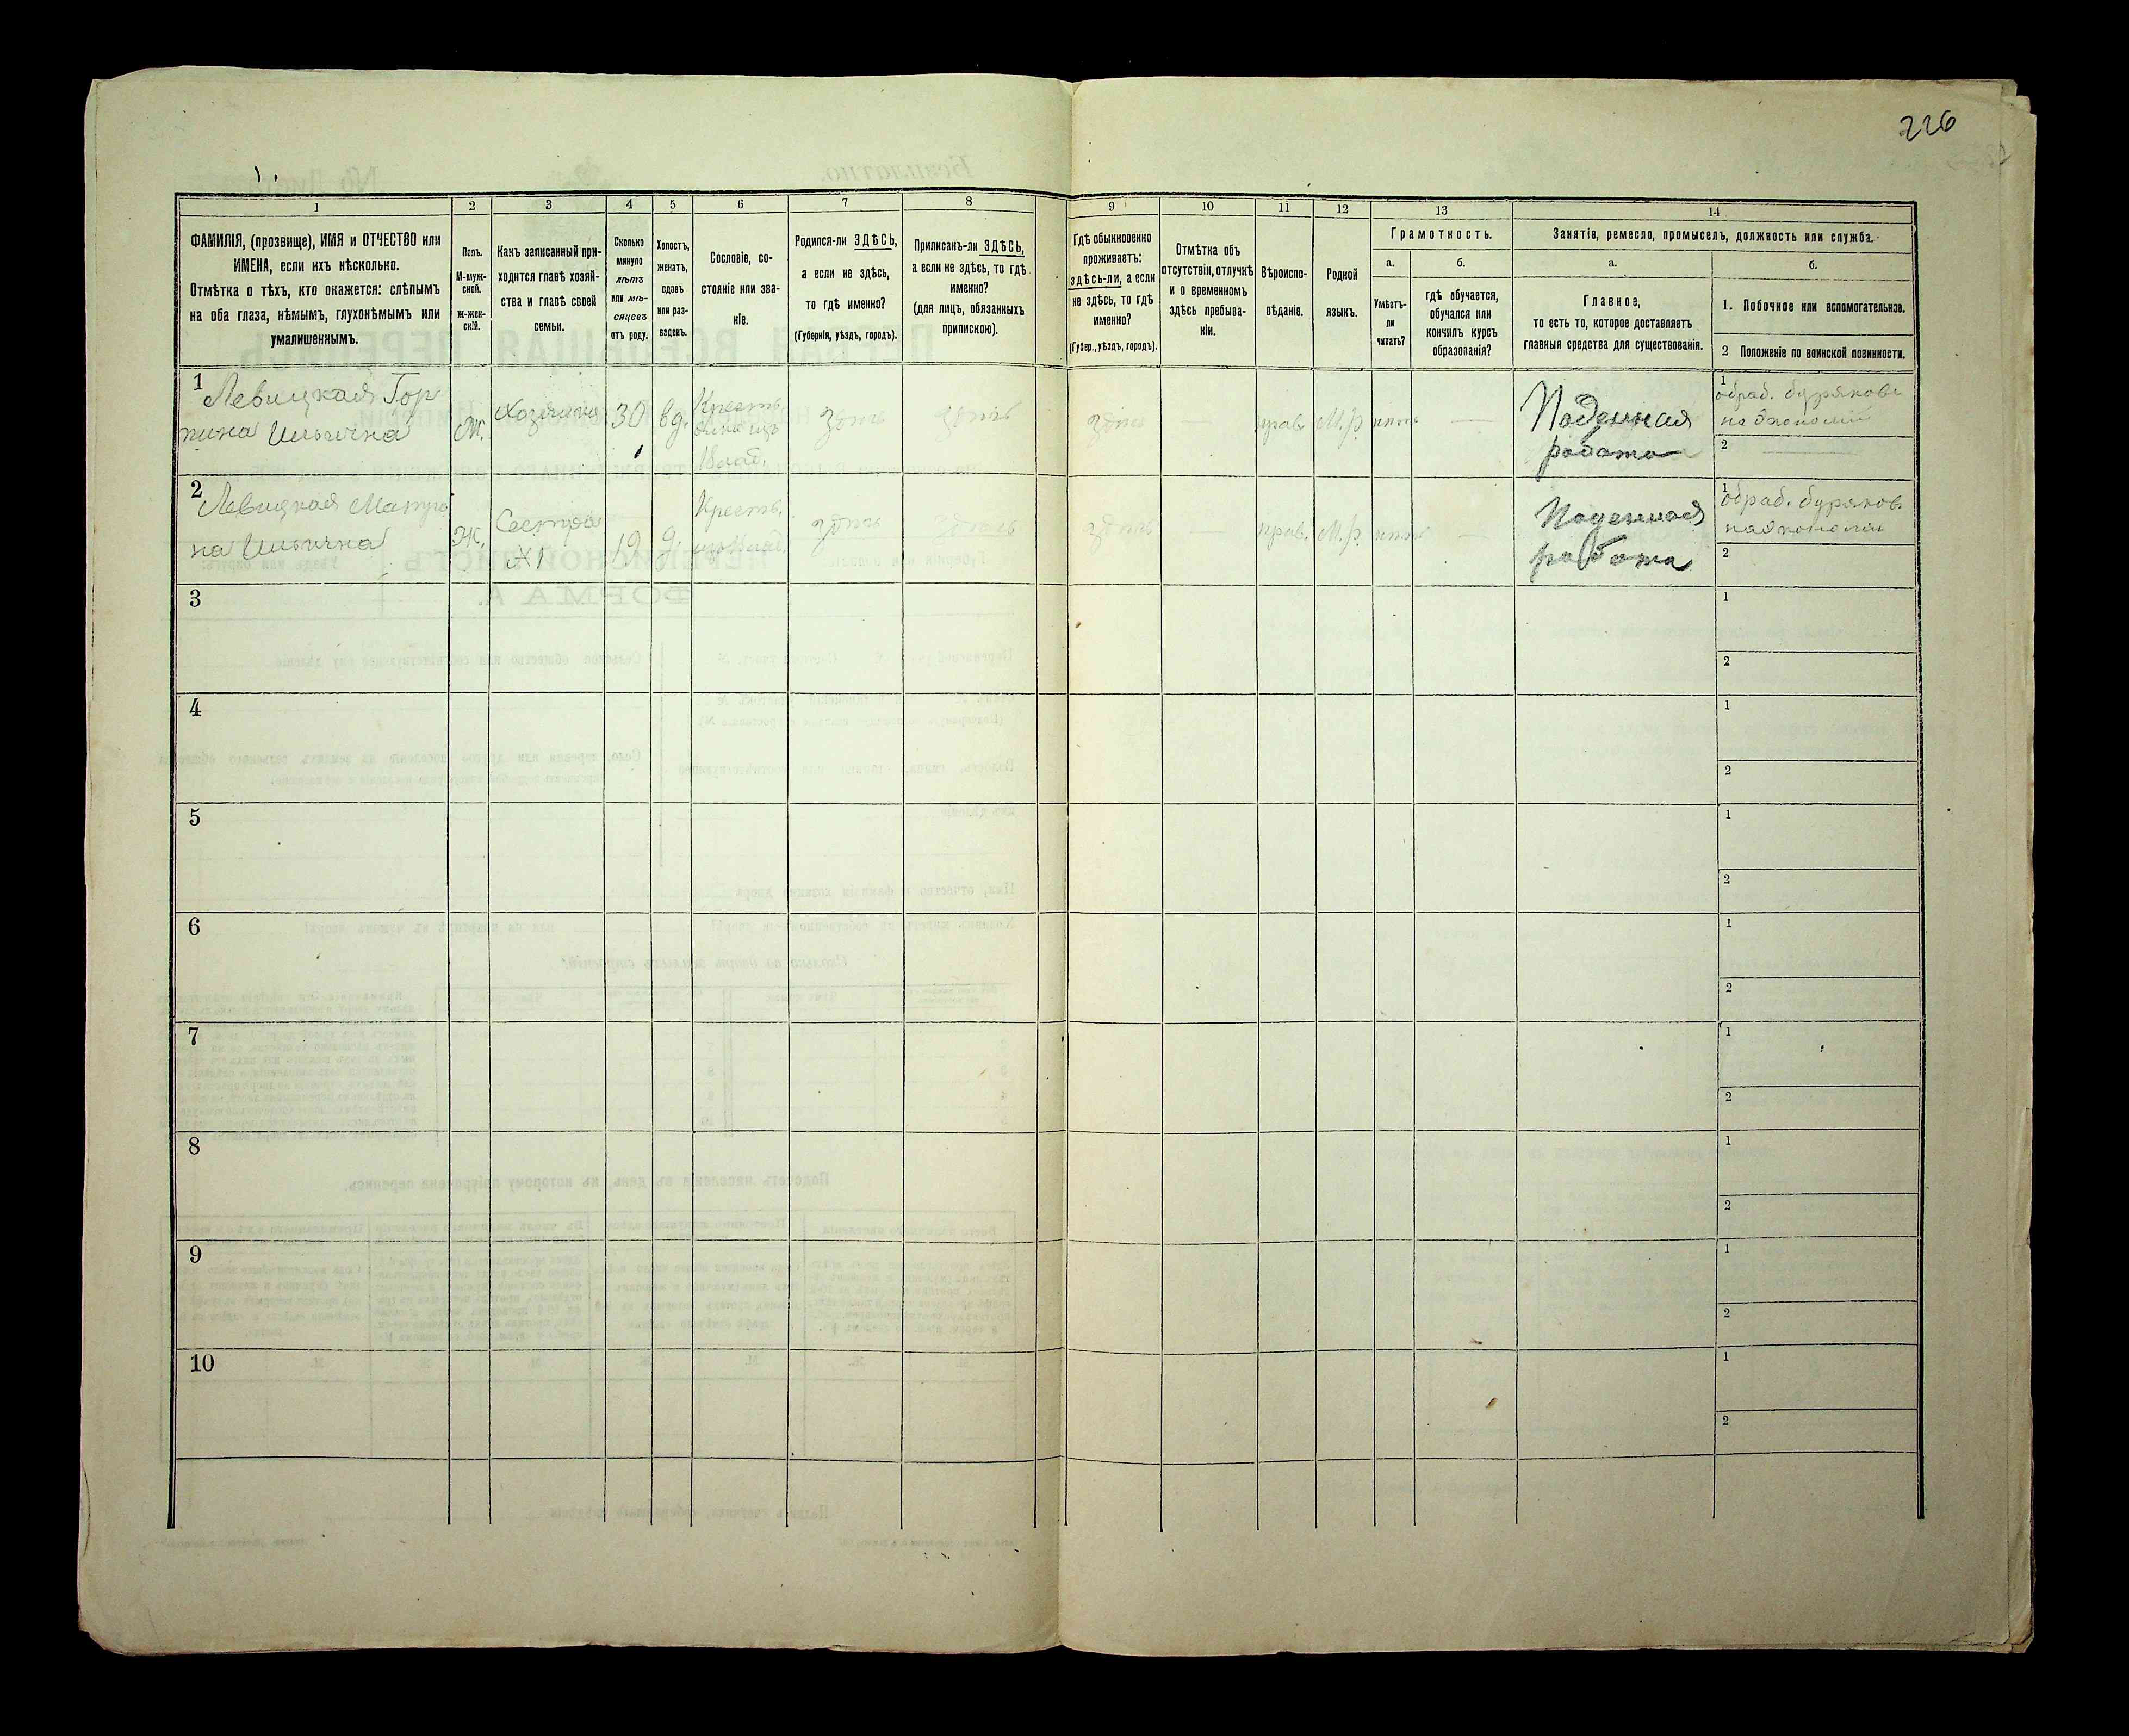 226
1
2
3
4
5
6
7
8
9
10
11
12
13
14
ФАМИЛІЯ, (прозвище), ИМЯ и ОТЧЕСТВО или
ИМЕНА, если ихъ нѣсколько.
Отмѣтка о тѣхъ, кто окажется: слѣпымъ
на оба глаза, нѣмымъ, глухонѣмымъ или
умалишеннымъ.
Полъ.
М-муж-
ской.
Ж-жен-
скій.
Какъ записанный при-
ходится главѣ хозяй-
ства и главѣ своей
семьи.
Сколько
минуло
лѣтъ
или мѣ-
сяцевъ
отъ роду.
Холостъ,
женатъ,
вдовъ
или раз-
веденъ.
Сословіе, со-
стояніе или зва-
ніе.
Родился-ли ЗДѢСЬ,
а если не здѣсь,
то гдѣ именно?
(Губернія, уѣздъ, городъ).
Приписанъ-ли ЗДѢСЬ,
а если не здѣсь, то гдѣ
именно?
(для лицъ, обязанныхъ
припискою).
Гдѣ обыкновенно
проживаетъ:
здѣсь-ли, а если
не здѣсь, то гдѣ
именно?
(Губер., уѣздъ, городъ).
Отмѣтка объ
отсутствіи, отлучкѣ
и о временномъ
здѣсь пребыва-
ніи.
Вѣроиспо-
вѣданіе.
Родной
языкъ.
Грамотность.
а.
Умѣетъ-
ли
читать?
б.
гдѣ обучается,
обучался или
кончилъ курсъ
образованія?
Занятіе, ремесло, промыселъ, должность или служба.
а.
Главное,
то есть то, которое доставляетъ
главныя средства для существованія.
б.
1. Побочное или вспомогательное.
2 Положеніе по воинской повинности.
1
Левицкая Гор
пина Ильична
Ж.
Хозяйка
30
вд.
Крестъ
янка изъ
Влад.
здѣсь
здѣсь
здѣсь
—
прав.
М.р.
нѣтъ
—
Поденная
работа
1
обраб. буряковъ
на экономіи
2
2
Левицкая Матро
на Ильична
Ж.
Сестра
№1
19
д.
Крестъ.
изъ Влад.
здѣсь
здѣсь
здѣсь
—
прав.
М.р.
нѣтъ
—
Поденная
работа
1
обраб. буряковъ
на экономіи
2
3
1
2
4
1
2
5
1
2
6
1
2
7
1
2
8
1
2
9
1
2
10
1
2